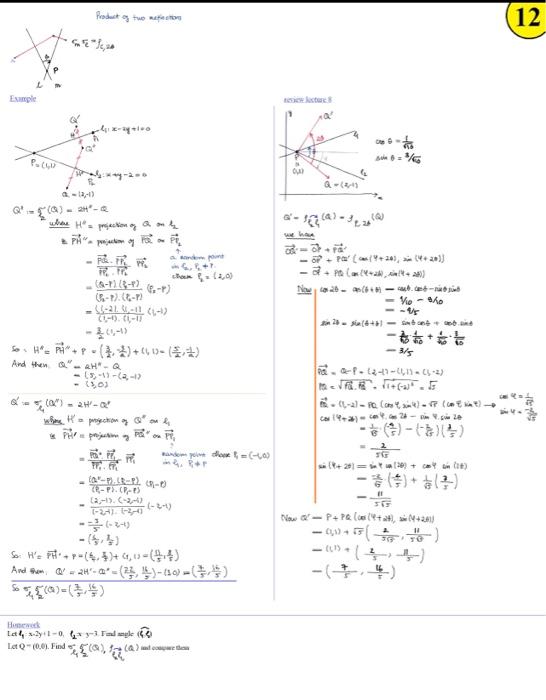 12
Product of two reflections
σm σℓ = ρC,2θ
P
ℓ m
Example
Q'
ℓ1: x-2y+1=0
P1
H'
Q''
P=(1,1)
H''
ℓ2: x+y-2=0
P2
Q=(2,-1)
Q'' := σℓ2(Q) = 2H''-Q
where H'' = projection of Q on ℓ2
& PH'' = projection of PQ on PP2
= PQ·PP2 / PP2·PP2 PP2
a random point in ℓ2, P2 ≠ P.
choose P2 = (2,0)
= (Q-P)·(P2-P) / (P2-P)·(P2-P) (P2-P)
= (1,-2)·(1,-1) / (1,-1)·(1,-1) (1,-1)
= 3/2 (1,-1)
So: H'' = PH'' + P = (3/2, -3/2) + (1,1) = (5/2, -1/2)
And then, Q'' = 2H'' - Q
= (5,-1) - (2,-1)
= (3,0)
Q' := σℓ1(Q'') = 2H' - Q''
where H' = projection of Q'' on ℓ1
& PH' = projection of PQ'' on PP1
= PQ''·PP1 / PP1·PP1 PP1
random point in ℓ1, P1 ≠ P
choose P1 = (-1,0)
= (Q''-P)·(P1-P) / (P1-P)·(P1-P) (P1-P)
= (2,-1)·(-2,-1) / (-2,-1)·(-2,-1) (-2,-1)
= -3/5 (-2,-1)
= (6/5, 3/5)
So: H' = PH' + P = (6/5, 3/5) + (1,1) = (11/5, 8/5)
And then, Q' = 2H' - Q'' = (22/5, 16/5) - (3,0) = (7/5, 16/5)
So σℓ1 σℓ2(Q) = (7/5, 16/5)
review lecture 8
Q'
ℓ1
2θ
P
(1,1)
ℓ2
Q=(2,-1)
cos θ = 1/√10
sin θ = 3/√10
Q' = (Q) = ρP,2θ (Q)
we have
OQ' = OP + PQ'
= OP + PQ' (cos(φ+2θ), sin(φ+2θ))
= OP + PQ (cos(φ+2θ), sin(φ+2θ))
Now cos 2θ = cos(θ+θ) = cosθ.cosθ - sinθ sinθ
= 1/10 - 9/10
= -4/5
sin 2θ = sin(θ+θ) = sinθ cosθ + cosθ.sinθ
= 3/√10 · 1/√10 + 1/√10 · 3/√10
= 3/5
PQ = Q-P = (2,-1)-(1,1) = (1,-2)
PQ = √PQ·PQ = √1+(-2)² = √5
PQ = (1,-2) = PQ (cos φ, sin φ) = √5 (cos φ, sin φ) → cos φ = 1/√5
sin φ = -2/√5
cos(φ+2θ) = cos φ. cos 2θ - sin φ. sin 2θ
= 1/√5 (-4/5) - (-2/√5)(3/5)
= 2/5√5
sin(φ+2θ) = sin φ cos(2θ) + cos φ sin(2θ)
= -2/√5 (-4/5) + 1/√5 (3/5)
= 11/5√5
Now Q' = P + PQ (cos(φ+2θ), sin(φ+2θ))
= (1,1) + √5 (2/5√5, 11/5√5)
= (1,1) + (2/5, 11/5)
= (7/5, 16/5)
Homework
Let ℓ1: x-2y+1=0, ℓ2: x-y=3. Find angle
Let Q = (0,0). Find σℓ1 σℓ2(Q), (Q) and compare them